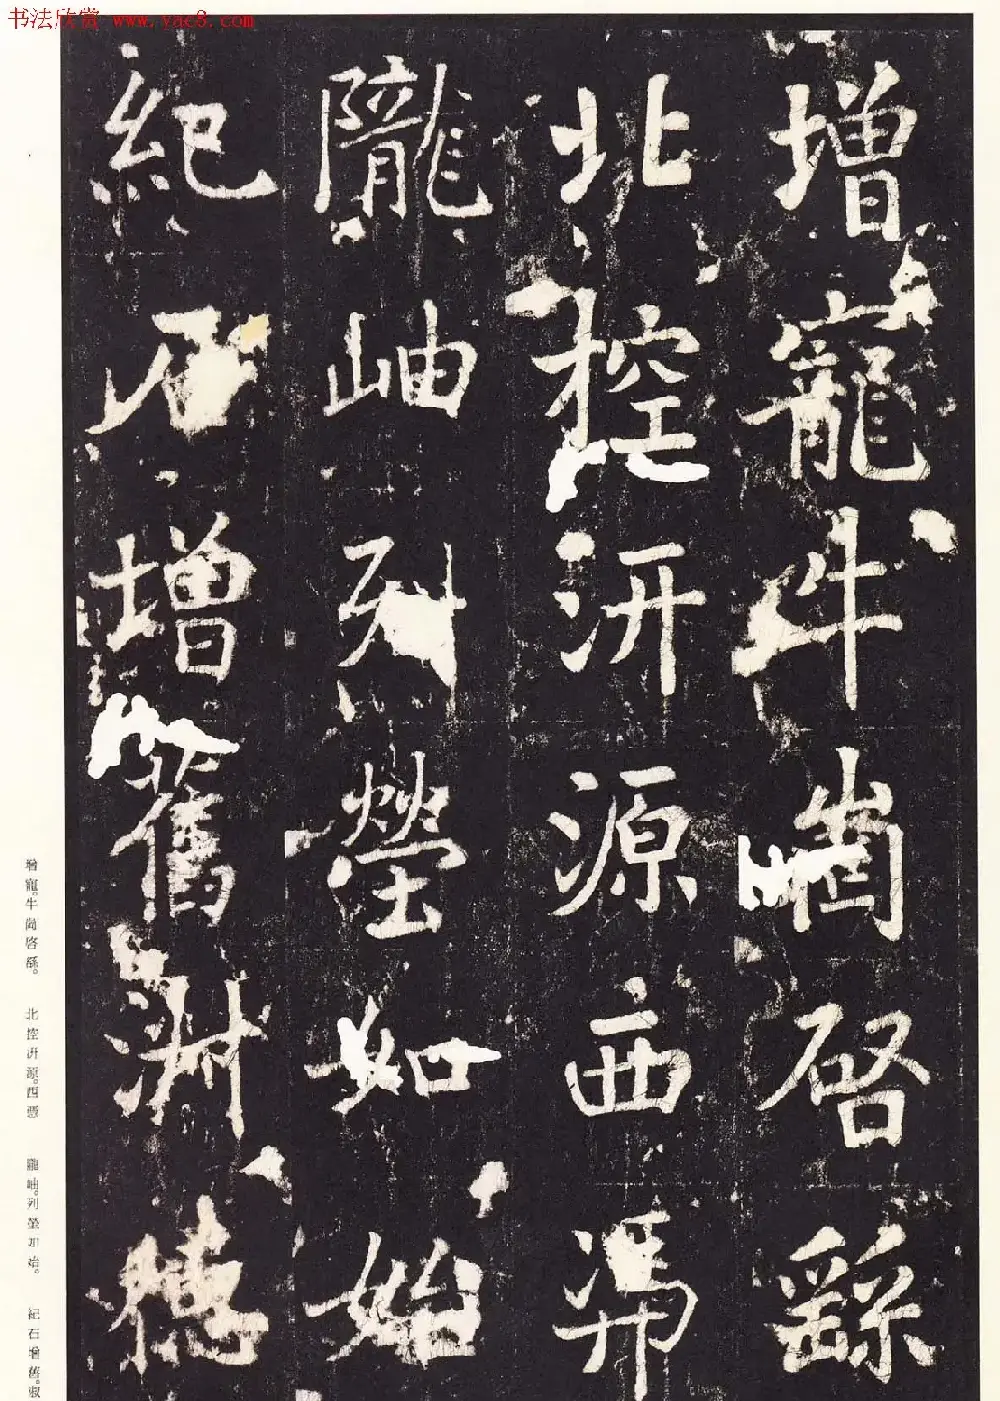 书法欣赏 www.yac8.com
增寵牛崗啓繇
北控汧源西馮
隴岫列塋如始
紀石增舊淵穗
增寵。牛崗啓繇。
北控汧源。西憑
隴岫。列塋如始。
紀石增舊。淑